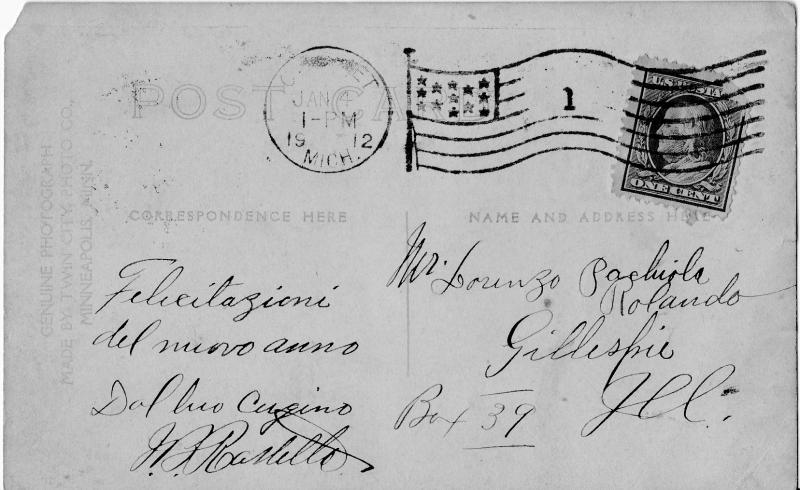 POST CARD
JAN 4
1-PM
19 12
MICH.
1
ONE CENT
GENUINE PHOTOGRAPH
MADE BY TWIN CITY PHOTO CO.,
MINNEAPOLIS, MINN.
CORRESPONDENCE HERE
NAME AND ADDRESS HERE
Felicitazioni
del nuovo anno
Dal tuo Cugino
Mr. Lorenzo
Rolando
Gillespie
Box 39 Ill.